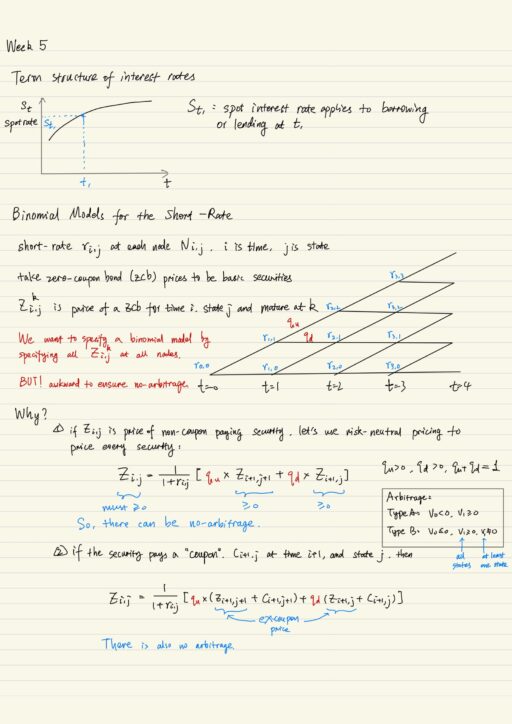 Week 5
Term structure of interest rates
St
spot rate
St₁
t₁
t
St₁ : spot interest rate applies to borrowing
or lending at t₁
Binomial Models for the Short-Rate
short-rate ri,j at each node Ni,j . i is time, j is state
take zero-coupon bond (zcb) prices to be basic securities
Z^k i,j is price of a zcb for time i. state j and mature at k
We want to specify a binomial model by
specifying all Z^k i,j at all nodes.
BUT! awkward to ensure no-arbitrage.
r3,3
r2,2
r3,2
qu
qd
r1,1
r2,1
r3,1
r0,0
r1,0
r2,0
r3,0
t=0 t=1 t=2 t=3 t=4
Why?
① if Zi,j is price of non-coupon paying security, let's use risk-neutral pricing to
price every security:
Zi,j = 1/(1+ri,j) [qu × Zi+1,j+1 + qd × Zi+1,j]
must ≥0 ≥0 ≥0
qu>0, qd>0, qu+qd=1
So, there can be no-arbitrage.
Arbitrage:
Type A: V0<0, V1≥0
Type B: V0≤0, V1≥0, V1≠0
all states
at least one state
② if the security pays a "coupon". Ci+1,j at time i+1, and state j. then
Zi,j = 1/(1+ri,j) [qu×(Zi+1,j+1 + Ci+1,j+1) + qd(Zi+1,j + Ci+1,j)]
ex-coupon
price
There is also no arbitrage.